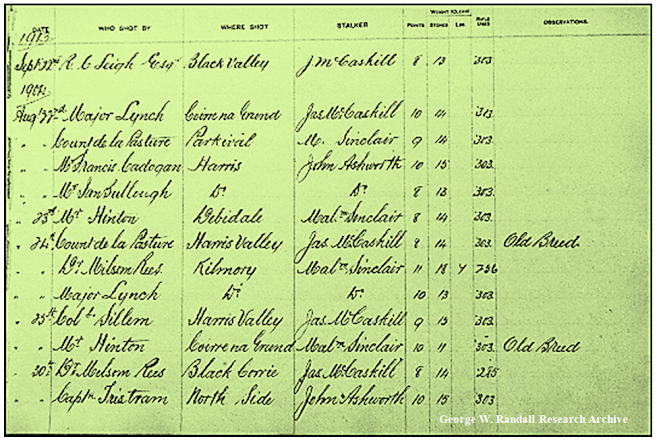 DATE WHO SHOT BY WHERE SHOT STALKER POINTS WEIGHT (CLEAN) STONES Lbs. RIFLE USED OBSERVATIONS.
1913
Sept 22nd R. C. Leigh Esqr Black Valley J McCaskill 8 13 .303
Augt 22nd Major Lynch Coire na Grund Jas. McCaskill 10 14 .303
" " Count de la Pasture Parkival M. Sinclair 9 14 .303
" " Mr Francis Cadogan Harris John Ashworth 10 15 .303
" " Mr Ian Bullough Do. Do. 8 13 .303
" 23rd Mr Hinton Debidale Malm Sinclair 8 14 .303
" 24th Count de la Pasture Harris Valley Jas. McCaskill 8 14 .303 Old Breed
" " Dr Milsom Rees Kilmory Malm Sinclair 11 18 4 .256
" " Major Lynch Do. Do. 10 13 .303
" 25th Col. Sillem Harris Valley Jas. McCaskill 9 13 .303
" " Mr Hinton Coire na Grund Malm Sinclair 10 11 .303 Old Breed
" 30th Dr Milsom Rees Black Corrie Jas. McCaskill 8 14
" " Captn Tristram North Side John Ashworth 10 15 .303
George W. Randall Research Archive